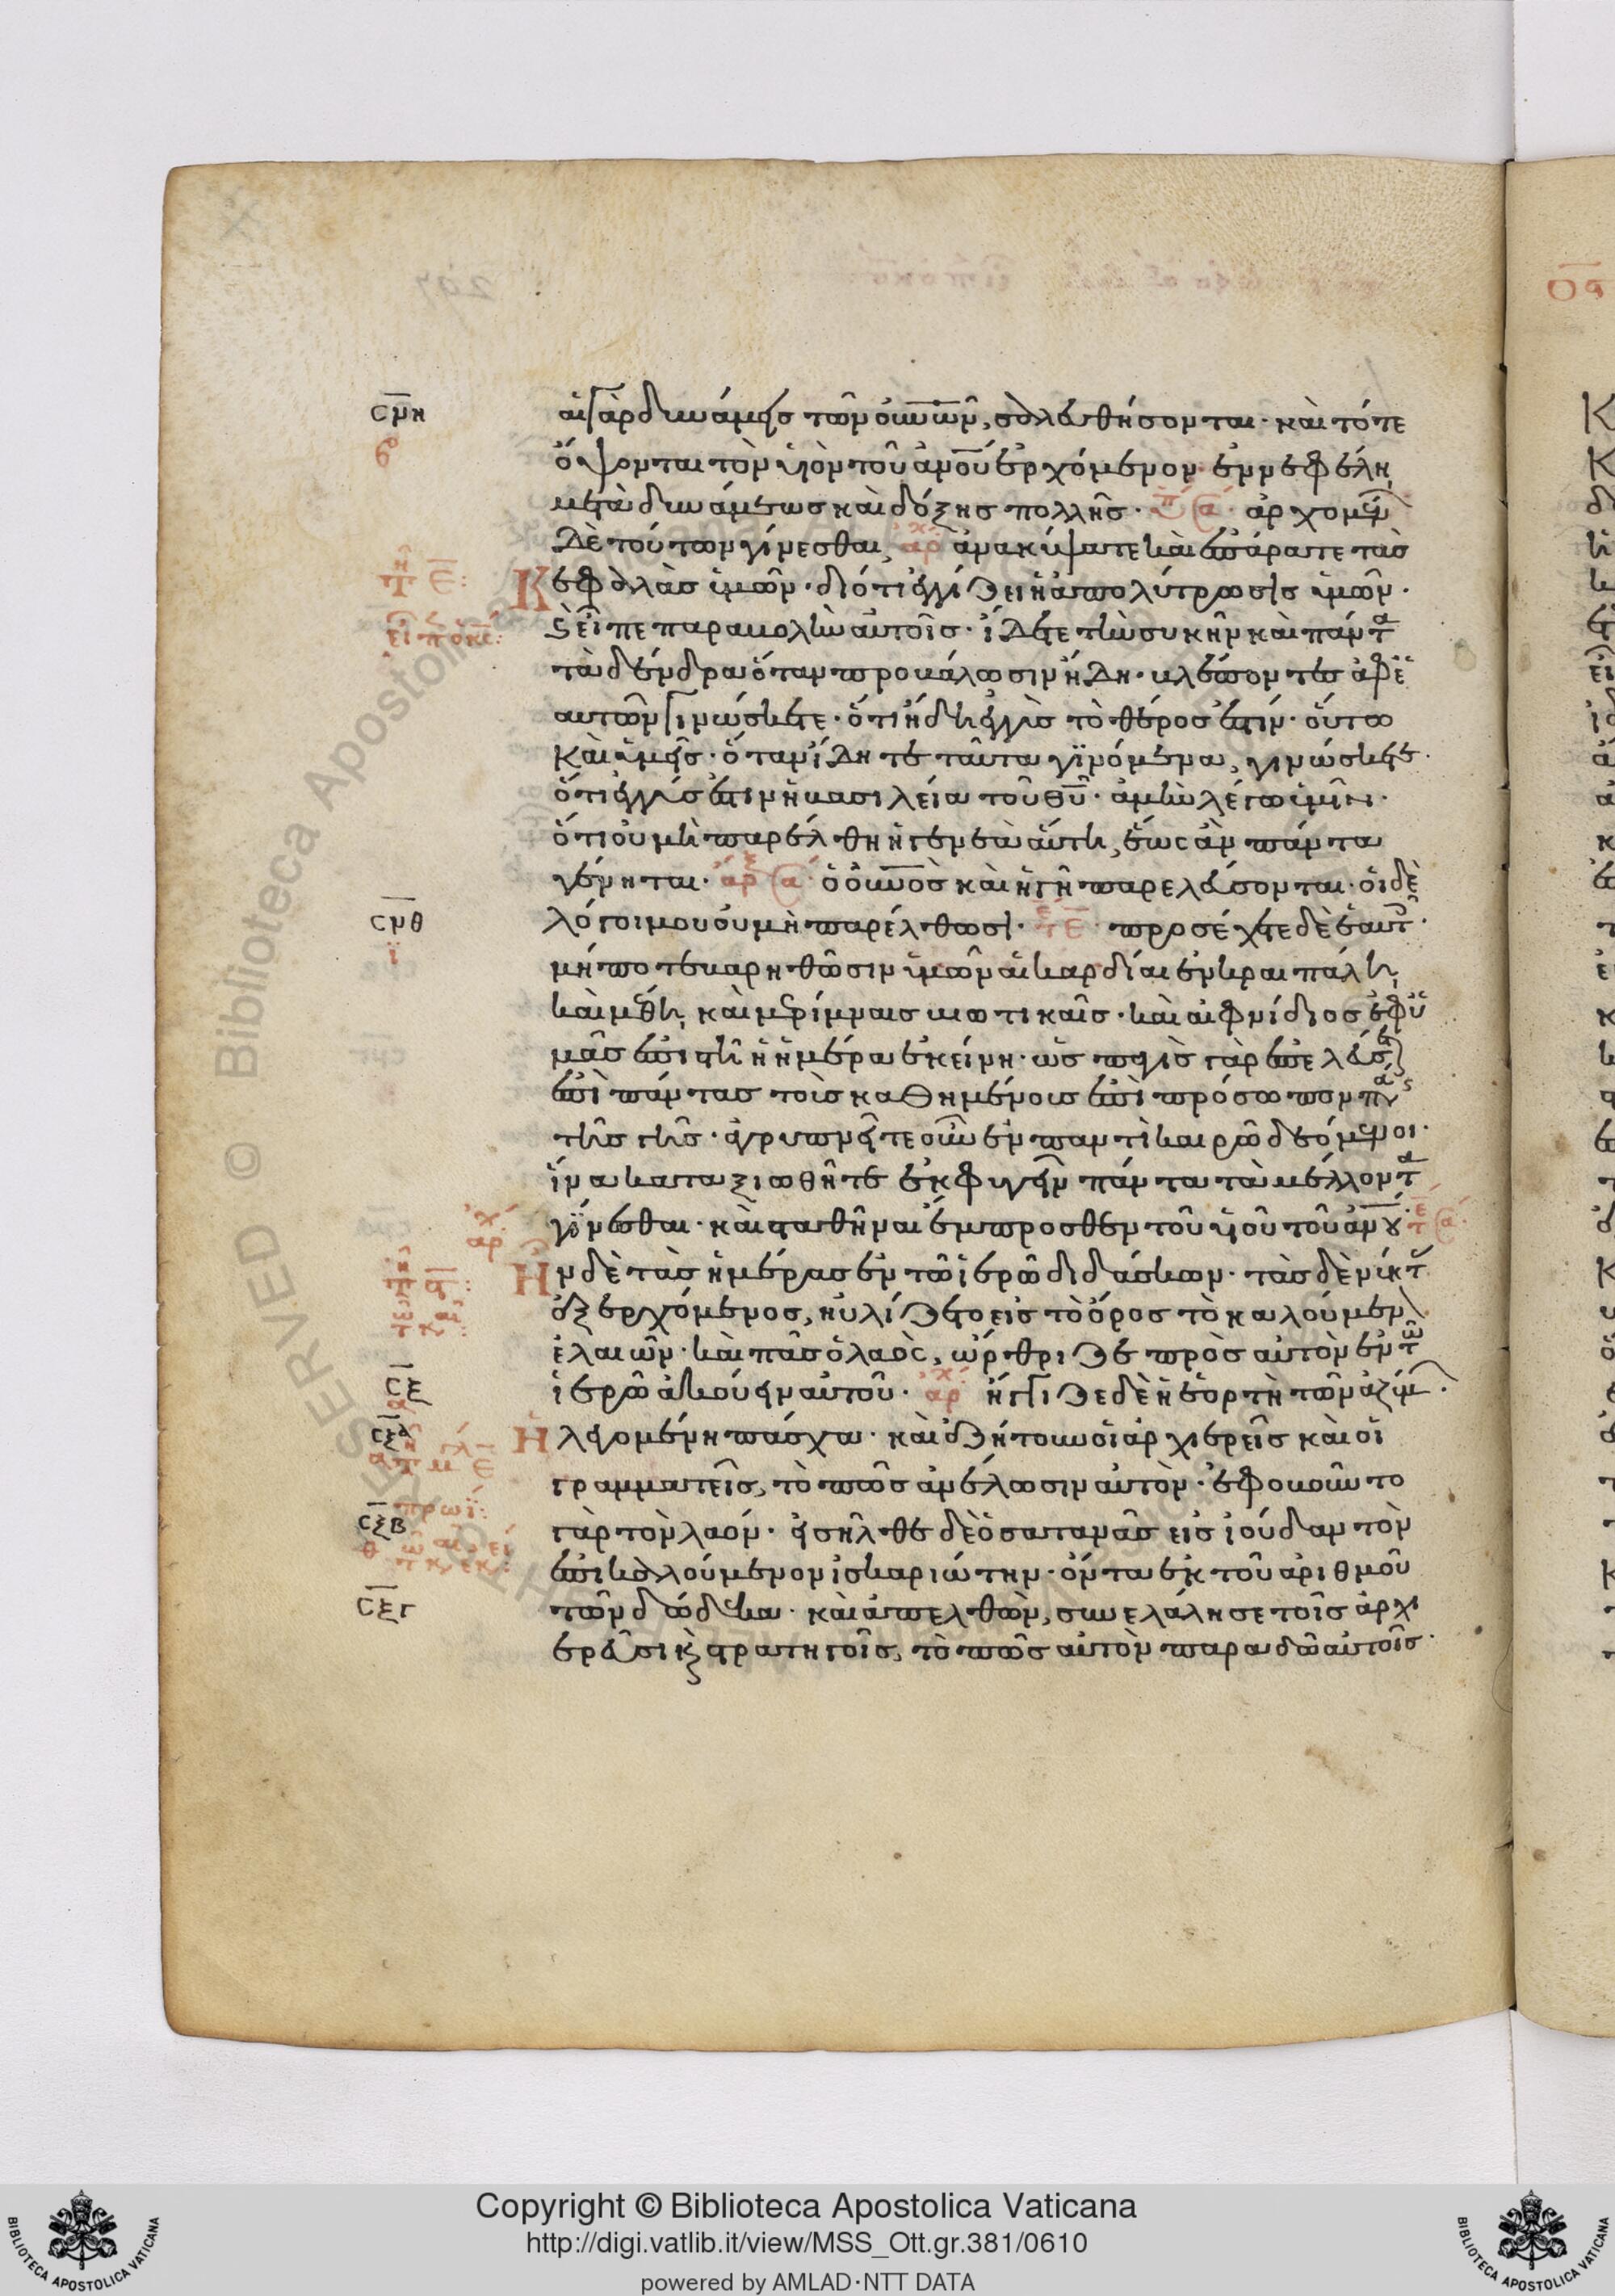 σμη
αἱ γὰρ δυνάμεις τῶν οὐνῶν, σαλευθήσονται· καὶ τότε
ὄψονται τὸν υἱὸν τοῦ ἀνου ἐρχόμενον ἐν νεφέλη
μετὰ δυνάμεως καὶ δόξης πολλῆς· ἀρχομέν
δὲ τούτων γίνεσθαι, ἀρχ ἀνακύψατε καὶ ἐπάρατε τὰς
Κεφαλὰς ὑμῶν· διότι ἐγγίζει ἡ ἀπολύτρωσις ὑμῶν·
ϛ εἶπε παραβολὴν αὐτοῖς· ἴδετε τὴν συκῆν καὶ πάντα
τὰ δένδρα ὅταν προβάλωσιν ἤδη· βλέποντες ἀφ' ἑ
αυτῶν γινώσκετε· ὅτι ἤδη ἐγγὺς τὸ θέρος ἐστίν· οὕτω
καὶ ὑμεῖς· ὅταν ἴδητε ταῦτα γινόμενα, γινώσκετε·
ὅτι ἐγγύς ἐστιν ἡ βασιλεία τοῦ θυ· ἀμὴν λέγω ὑμῖν·
ὅτι οὐ μὴ παρέλθη ἡ γενεὰ αὕτη, ἕως ἂν πάντα
γένηται· ὁ οὐνὸς καὶ ἡ γῆ παρελεύσονται· οἱ δὲ
σνθ
ι
λόγοι μου οὐ μὴ παρέλθωσι· προσέχετε δὲ ἑαυτ·
μήποτε βαρηθῶσιν ὑμῶν αἱ καρδίαι ἐν κραιπάλη,
καὶ μέθη, καὶ μερίμναις βιωτικαῖς· καὶ αἰφνίδιος ἐφ' ὑ
μᾶς ἐπιστῆ ἡ ἡμέρα ἐκείνη· ὡς παγὶς γὰρ ἐπελεύσε
ἐπὶ πάντας τοὺς καθημένους ἐπὶ πρόσωπον πά
τῆς γῆς· ἀγρυπνεῖτε οὖν ἐν παντὶ καιρῶ δεόμενοι·
ἵνα καταξιωθῆτε ἐκφυγεῖν πάντα τὰ μέλλοντα
γίνεσθαι· καὶ σταθῆναι ἔμπροσθεν τοῦ υἱοῦ τοῦ ἀνου·
Ἦν δὲ τὰς ἡμέρας ἐν τῶ ἱερῶ διδάσκων· τὰς δὲ νύκτ
ἐξερχόμενος, ηὐλίζετο εἰς τὸ ὄρος τὸ καλούμεν
ἐλαιῶν· καὶ πᾶς ὁ λαὸς, ὤρθριζε πρὸς αὐτὸν ἐν τῶ
σξ
ἱερῶ ἀκούειν αὐτοῦ· ἀρχ ἤγγιζε δὲ ἡ ἑορτὴ τῶν ἀζύμ·
σξα
Ἡ λεγομένη πάσχα· καὶ ἐζήτουν οἱ ἀρχιερεῖς καὶ οἱ
γραμματεῖς, τὸ πῶς ἀνέλωσιν αὐτὸν· ἐφοβοῦντο
πρωϊ
σξβ
γὰρ τὸν λαόν· εἰσῆλθε δὲ ὁ σατανᾶς εἰς ἰούδαν τὸν
ἐπικαλούμενον ἰσκαριώτην· ὄντα ἐκ τοῦ ἀριθμοῦ
σξγ
τῶν δώδεκα· καὶ ἀπελθὼν, συνελάλησε τοῖς ἀρχι
ερεῦσι κ στρατηγοῖς, τὸ πῶς αὐτὸν παραδῶ αὐτοῖς·
Copyright © Biblioteca Apostolica Vaticana
http://digi.vatlib.it/view/MSS_Ott.gr.381/0610
powered by AMLAD·NTT DATA